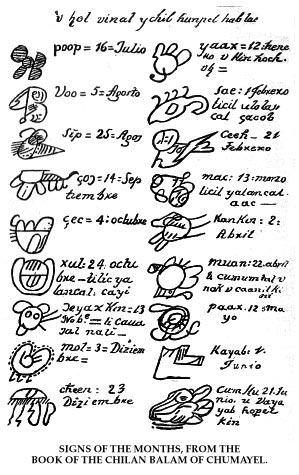 v hol vinal ychil humpel hab lae
poop = 16 = Julio
Voo = 5 = Agosto
Sip = 25 = Agos
çoɔ = 14 = Sep
tiembre
çec = 4: octubre
xul: 24. octu
bre — tilic ya
lancal. cayi
Ɔeyax Kin: 13
Nobe = li caua
yal nali —
mol = 3 = Diziem
bre =
cheen: 23
Diziembre
yaax = 12: hene
ro v kin hoch.
sac: 1 febrero
licil u lolan
cal çacob
Ceeh — 21
Febrero
mac: 13: marzo
licil yalancal.
aac —
KanKin: 2:
Abril
muan: 22. abril
paax. 12 = ma
yo
Kayab: 1.
Junio
Cum Ku 21 Ju
nio. u Vaya
yab hopel
kin
SIGNS OF THE MONTHS, FROM THE
BOOK OF THE CHILAN BALAM OF CHUMAYEL.